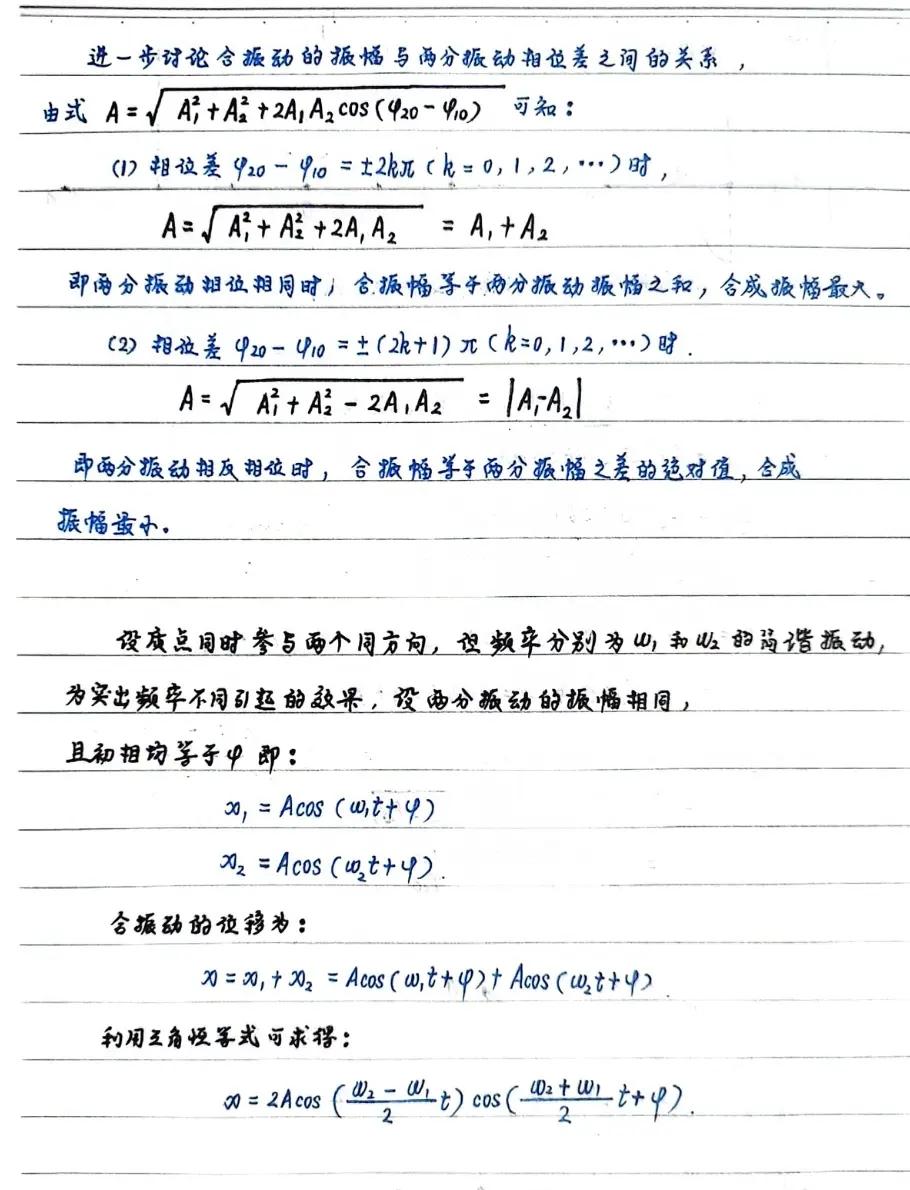 进一步讨论合振动的振幅与两分振动相位差之间的关系，
由式 A=√(A₁²+A₂²+2A₁A₂cos(φ₂₀-φ₁₀)) 可知：
(1) 相位差 φ₂₀-φ₁₀=±2kπ(k=0,1,2,…)时，
A=√(A₁²+A₂²+2A₁A₂) = A₁+A₂
即两分振动相位相同时，合振幅等于两分振动振幅之和，合成振幅最大。
(2) 相位差 φ₂₀-φ₁₀=±(2k+1)π(k=0,1,2,…)时.
A=√(A₁²+A₂²-2A₁A₂) = |A₁-A₂|
即两分振动相反相位时，合振幅等于两分振幅之差的绝对值，合成
振幅最小。
设质点同时参与两个同方向，但频率分别为ω₁和ω₂的简谐振动，
为突出频率不同引起的效果，设两分振动的振幅相同，
且初相均等于φ 即：
x₁=Acos(ω₁t+φ)
x₂=Acos(ω₂t+φ).
合振动的位移为：
x=x₁+x₂=Acos(ω₁t+φ)+Acos(ω₂t+φ).
利用三角恒等式可求得：
x=2Acos((ω₂-ω₁)/2 t)cos((ω₂+ω₁)/2 t+φ).